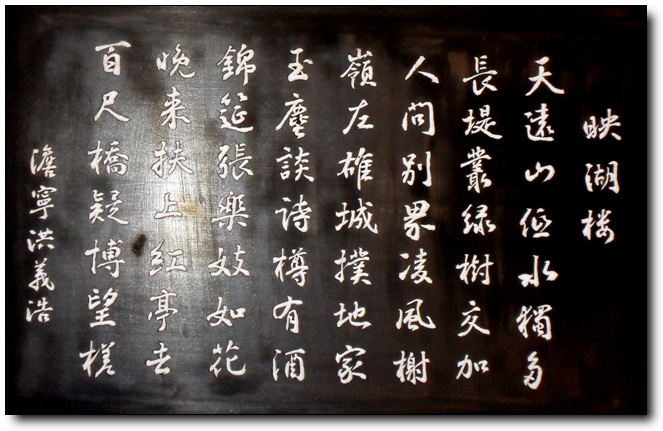 映湖楼
天遠山低水獨多
長堤叢綠樹交加
人間別界凌風榭
嶺左雄城撲地家
玉麈談詩樽有酒
錦筵張樂妓如花
晚来扶上紅亭去
百尺橋疑博望槎
澹寧洪義浩